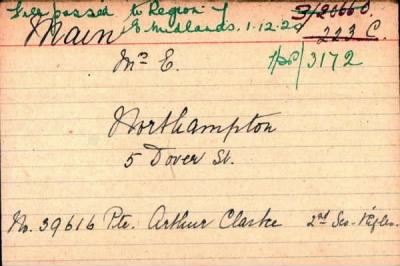 Files passed to Region of
E. Midlands. 1.12.20
3/20660
Main
223 C.
Mrs E.
3172
Northampton
5 Dover St.
No. 39616 Pte. Arthur Clarke 2nd Sco. Rifles.